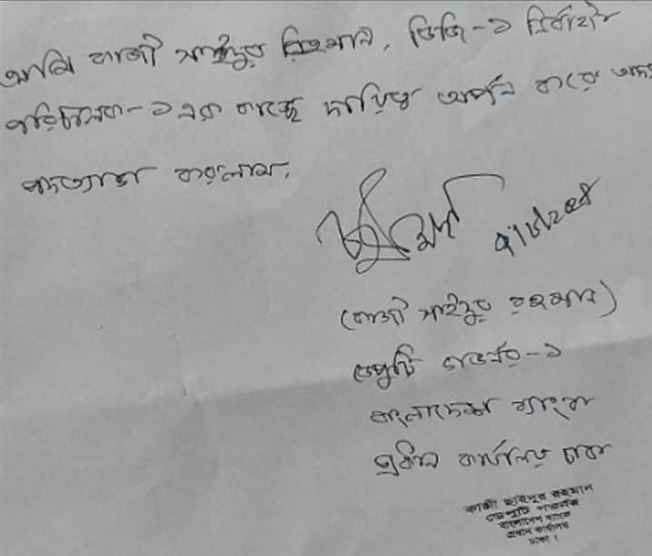 আমি কাজী সাইদুর রহমান, ডিজি-১ নির্বাহী
পরিচালক-১ এর কাছে দায়িত্ব অর্পন করে অদ্য
পদত্যাগ করলাম।
৭/৮/২০২৪
(কাজী সাইদুর রহমান)
ডেপুটি গভর্নর-১
বাংলাদেশ ব্যাংক
প্রধান কার্যালয় ঢাকা
কাজী ছাইদুর রহমান
ডেপুটি গভর্নর
বাংলাদেশ ব্যাংক
প্রধান কার্যালয়
ঢাকা।